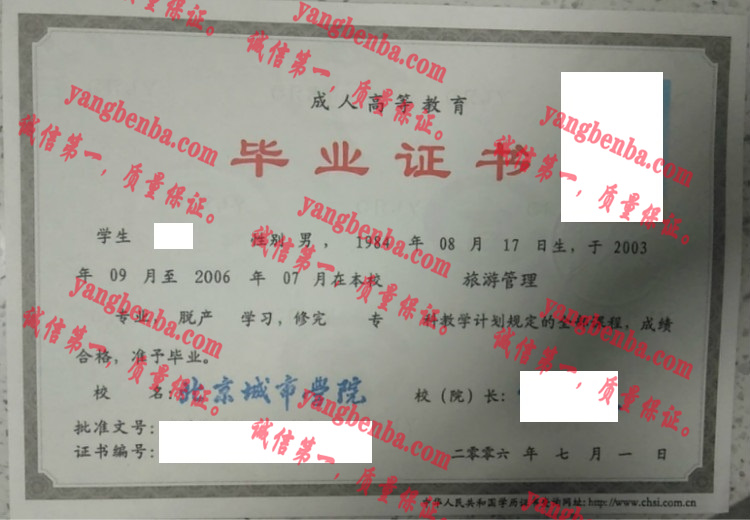 成人高等教育
毕业证书
学生 性别男，1984 年 08 月 17 日生，于 2003
年 09 月至 2006 年 07 月在本校 旅游管理
专业 脱产 学习，修完 专 科教学计划规定的全部课程，成绩
合格，准予毕业。
校 名：北京城市学院 校（院）长：
批准文号：
证书编号： 二〇〇六 年 七 月 一 日
中华人民共和国学历证书查询网址：http://www.chsi.com.cn
yangbenba.com
诚信第一，质量保证。
yangbenba.com
诚信第一，质量保证。
yangbenba.com
诚信第一，质量保证。
yangbenba.com
诚信第一，质量保证。
yangbenba.com
诚信第一，质量保证。
yangbenba.com
诚信第一，质量保证。
yangbenba.com
诚信第一，质量保证。
yangbenba.com
诚信第一，质量保证。
yangbenba.com
诚信第一，质量保证。